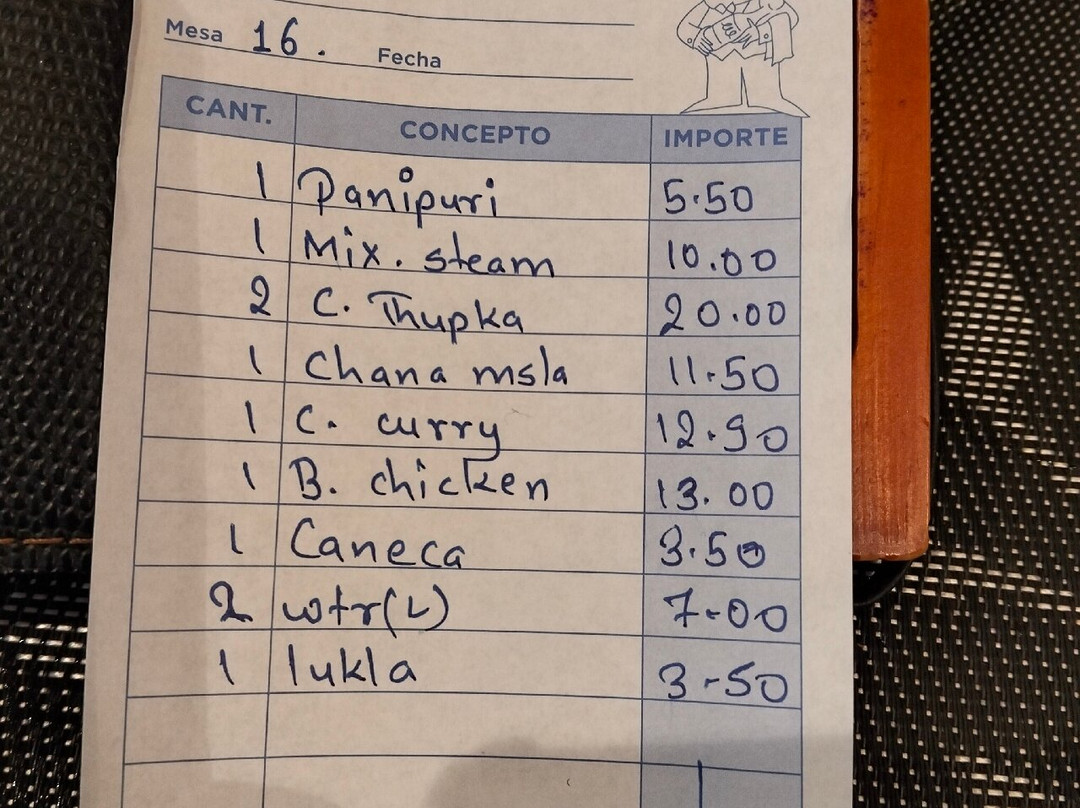 Mesa 16. Fecha
CANT. CONCEPTO IMPORTE
1 Panipuri 5.50
1 Mix. steam 10.00
2 C. Thupka 20.00
1 Chana msla 11.50
1 C. curry 12.90
1 B. chicken 13.00
1 Caneca 3.50
2 wtr(L) 7.00
1 lukla 3.50